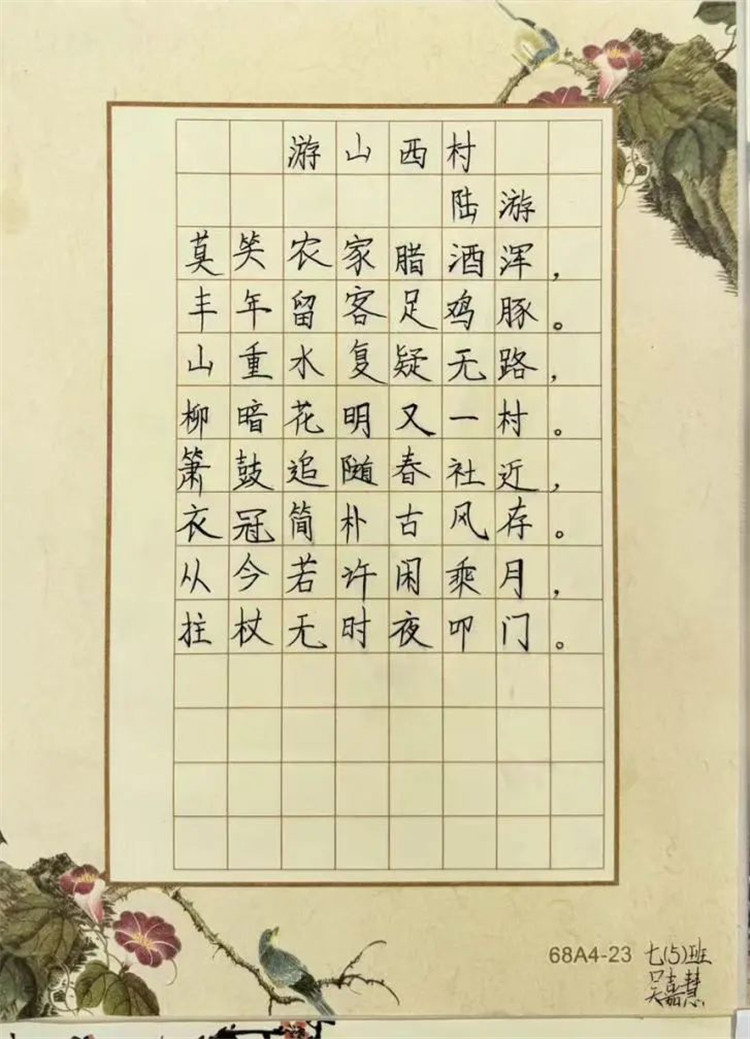 游山西村
陆游
莫笑农家腊酒浑，
丰年留客足鸡豚。
山重水复疑无路，
柳暗花明又一村。
箫鼓追随春社近，
衣冠简朴古风存。
从今若许闲乘月，
拄杖无时夜叩门。
68A4-23 七(5)班
吴嘉慧